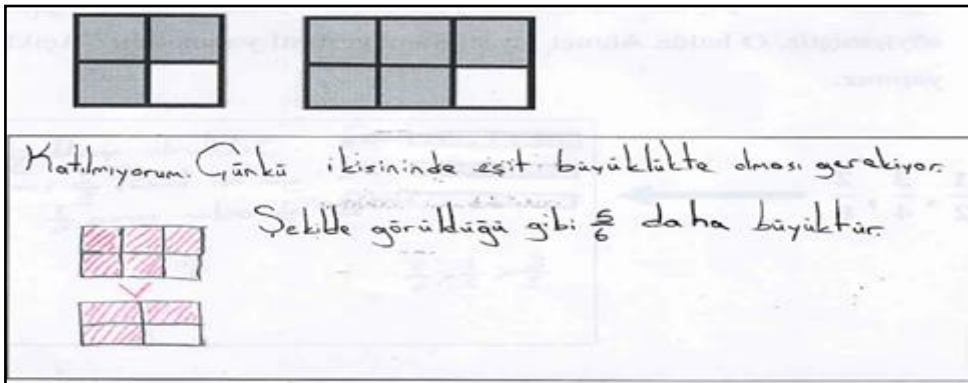 Katılmıyorum. Çünkü ikisininde eşit büyüklükte olması gerekiyor.
Şekilde görüldüğü gibi 5/6 daha büyüktür.